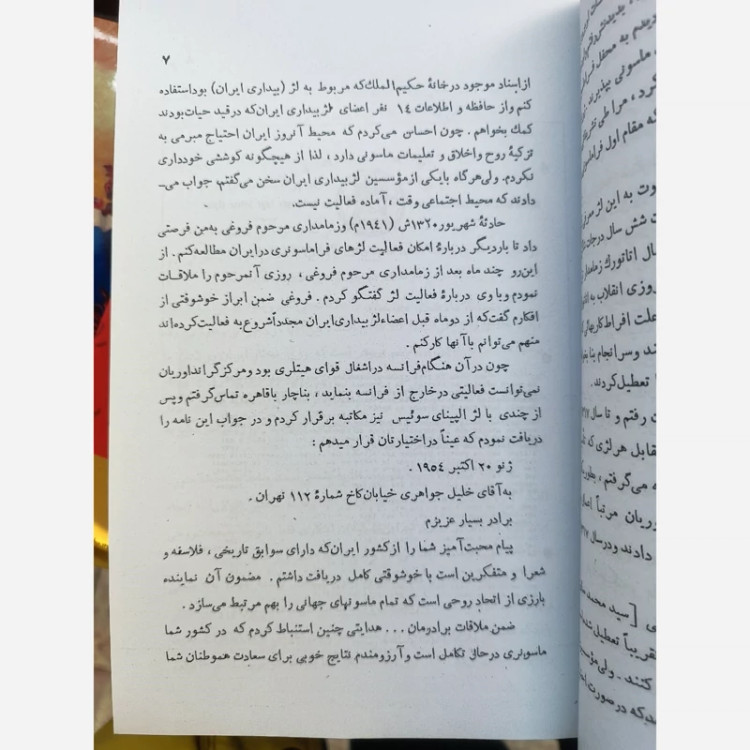 ۷
ازاسناد موجود درخانهٔ حکیم‌الملك‌که مربوط به لژ (بیداری ایران) بوداستفاده
کنم واز حافظه و اطلاعات ۱۴ نفر اعضای لژبیداری ایران‌که درقید حیات‌بودند
کمك بخواهم . چون احساس می‌کردم که محیط آنروز ایران احتیاج مبرمی به
تزکیهٔ روح واخلاق و تعلیمات ماسونی دارد ، لذا از هیچگونه کوششی خودداری
نکردم. ولی‌هرگاه بایکی ازمؤسسین لژبیداری ایران سخن می‌گفتم، جواب می‌ـ
دادند که محیط اجتماعی وقت ، آماده فعالیت نیست.
حادثهٔ شهریور۱۳۲۰ش (۱۹۴۱م) وزمامداری مرحوم فروغی به‌من فرصتی
داد تا باردیگر دربارهٔ امکان فعالیت لژهای فراماسونری درایران مطالعه‌کنم . از
این‌رو چند ماه بعد از زمامداری مرحوم فروغی ، روزی آنمرحوم را ملاقات
نمودم وباوی دربارهٔ فعالیت لژ گفتگو کردم . فروغی ضمن ابراز خوشوقتی از
افکارم گفت‌که از دوماه قبل اعضاء لژ بیداری‌ایران مجدداً شروع به فعالیت‌کرده‌اند
منهم می‌توانم باآنها کارکنم .
چون درآن هنگام‌فرانسه دراشغال قوای هیتلری بود ومرکزگرانداوریان
نمی‌توانست فعالیتی درخارج از فرانسه بنماید ، بناچار باقاهره تماس‌گرفتم وپس
از چندی با لژ الپینای سوئیس نیز مکاتبه برقرار کردم و در جواب این نامه را
دریافت نمودم که عیناً دراختیارتان قرار میدهم :
ژنو ۲۰ اکتبر ۱۹۵۴ .
به‌آقای خلیل جواهری خیابان‌کاخ شمارهٔ ۱۱۲ تهران .
برادر بسیار عزیزم
پیام محبت‌آمیز شما را ازکشور ایران‌که دارای سوابق تاریخی ، فلاسفه و
شعرا و متفکرین است با خوشوقتی کامل دریافت داشتم . مضمون آن نماینده
بارزی از اتحاد روحی است که تمام ماسونهای جهانی را بهم مرتبط می‌سازد .
ضمن ملاقات برادرمان ... هدایتی چنین استنباط کردم که در کشور شما
ماسونری درحال تکامل است وآرزومندم نتایج خوبی برای سعادت هموطنان شما